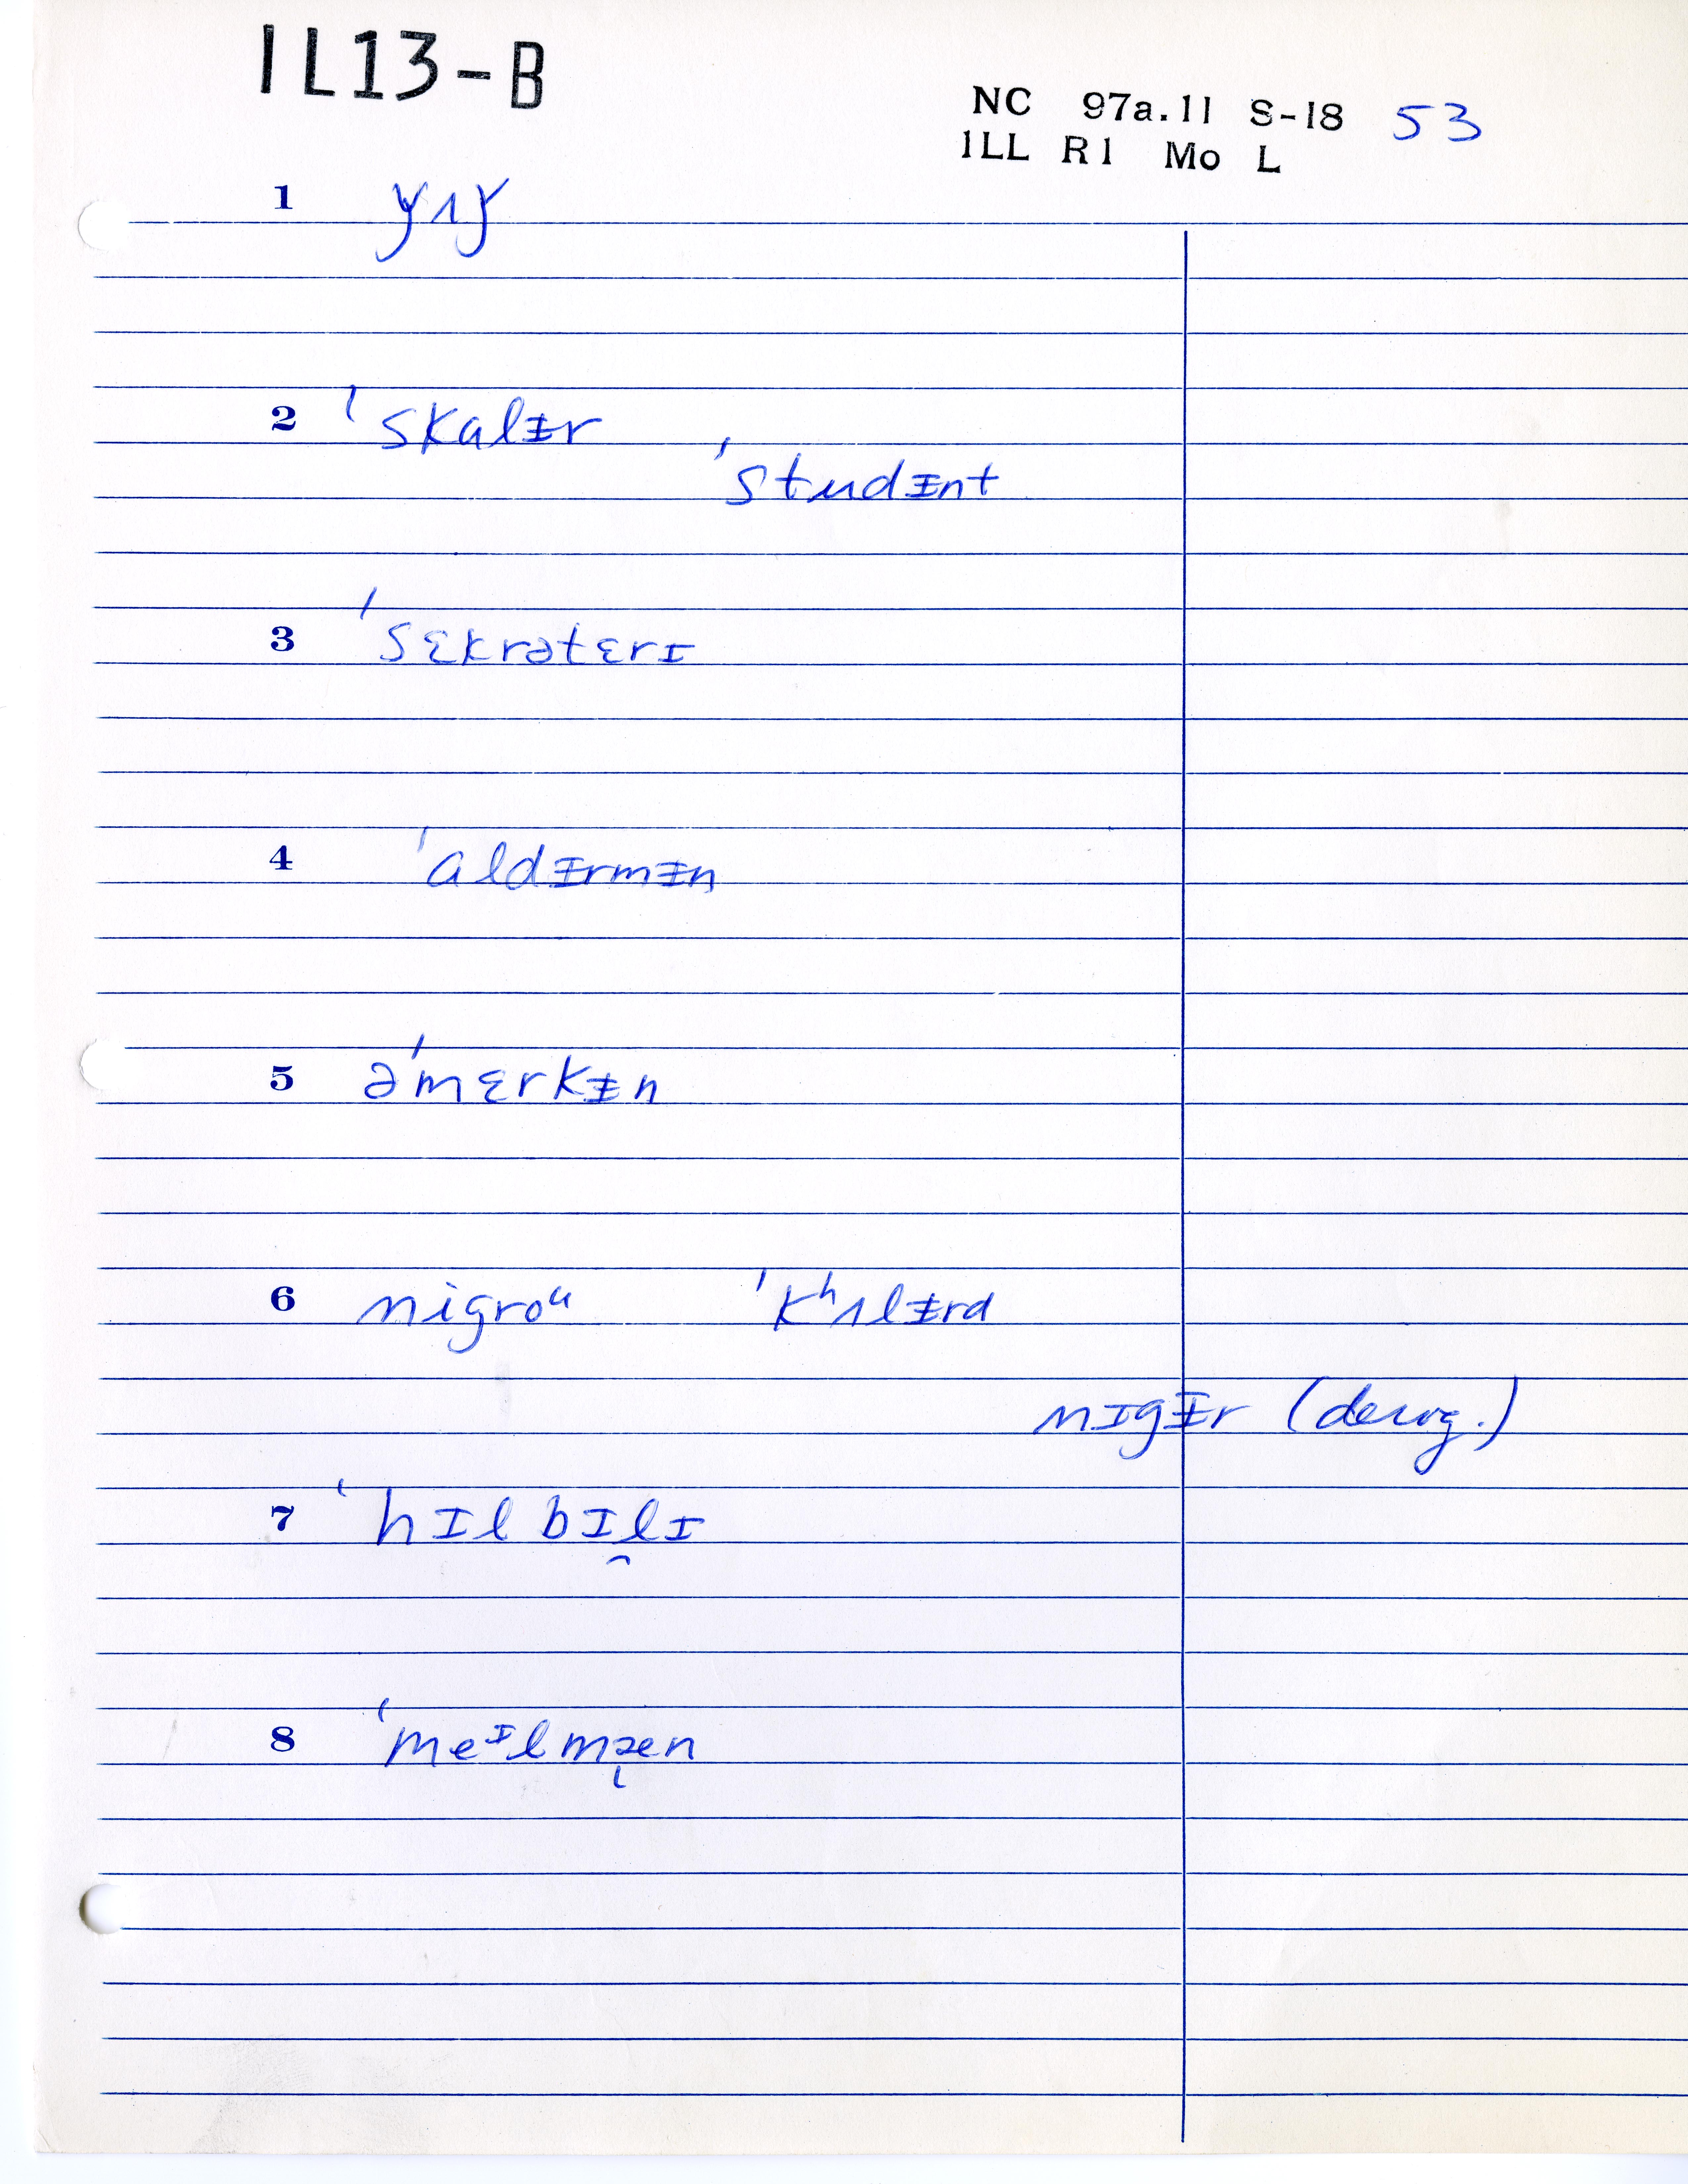 IL13-B
NC 97a.11 S-18 53
ILL R1 Mo L
1 ǰʌǰ
2 ˈskalᵻr
ˈstudᵻnt
3 ˈsɛkrətɛrɪ
4 ˈaldᵻrmᵻn
5 əˈmɛrkᵻn
6 nigroᵘ ˈkʰʌlᵻrd
nɪgᵻr (derog.)
7 ˈhɪlbɪl̯ɪ
8 ˈmeᶦlmæn